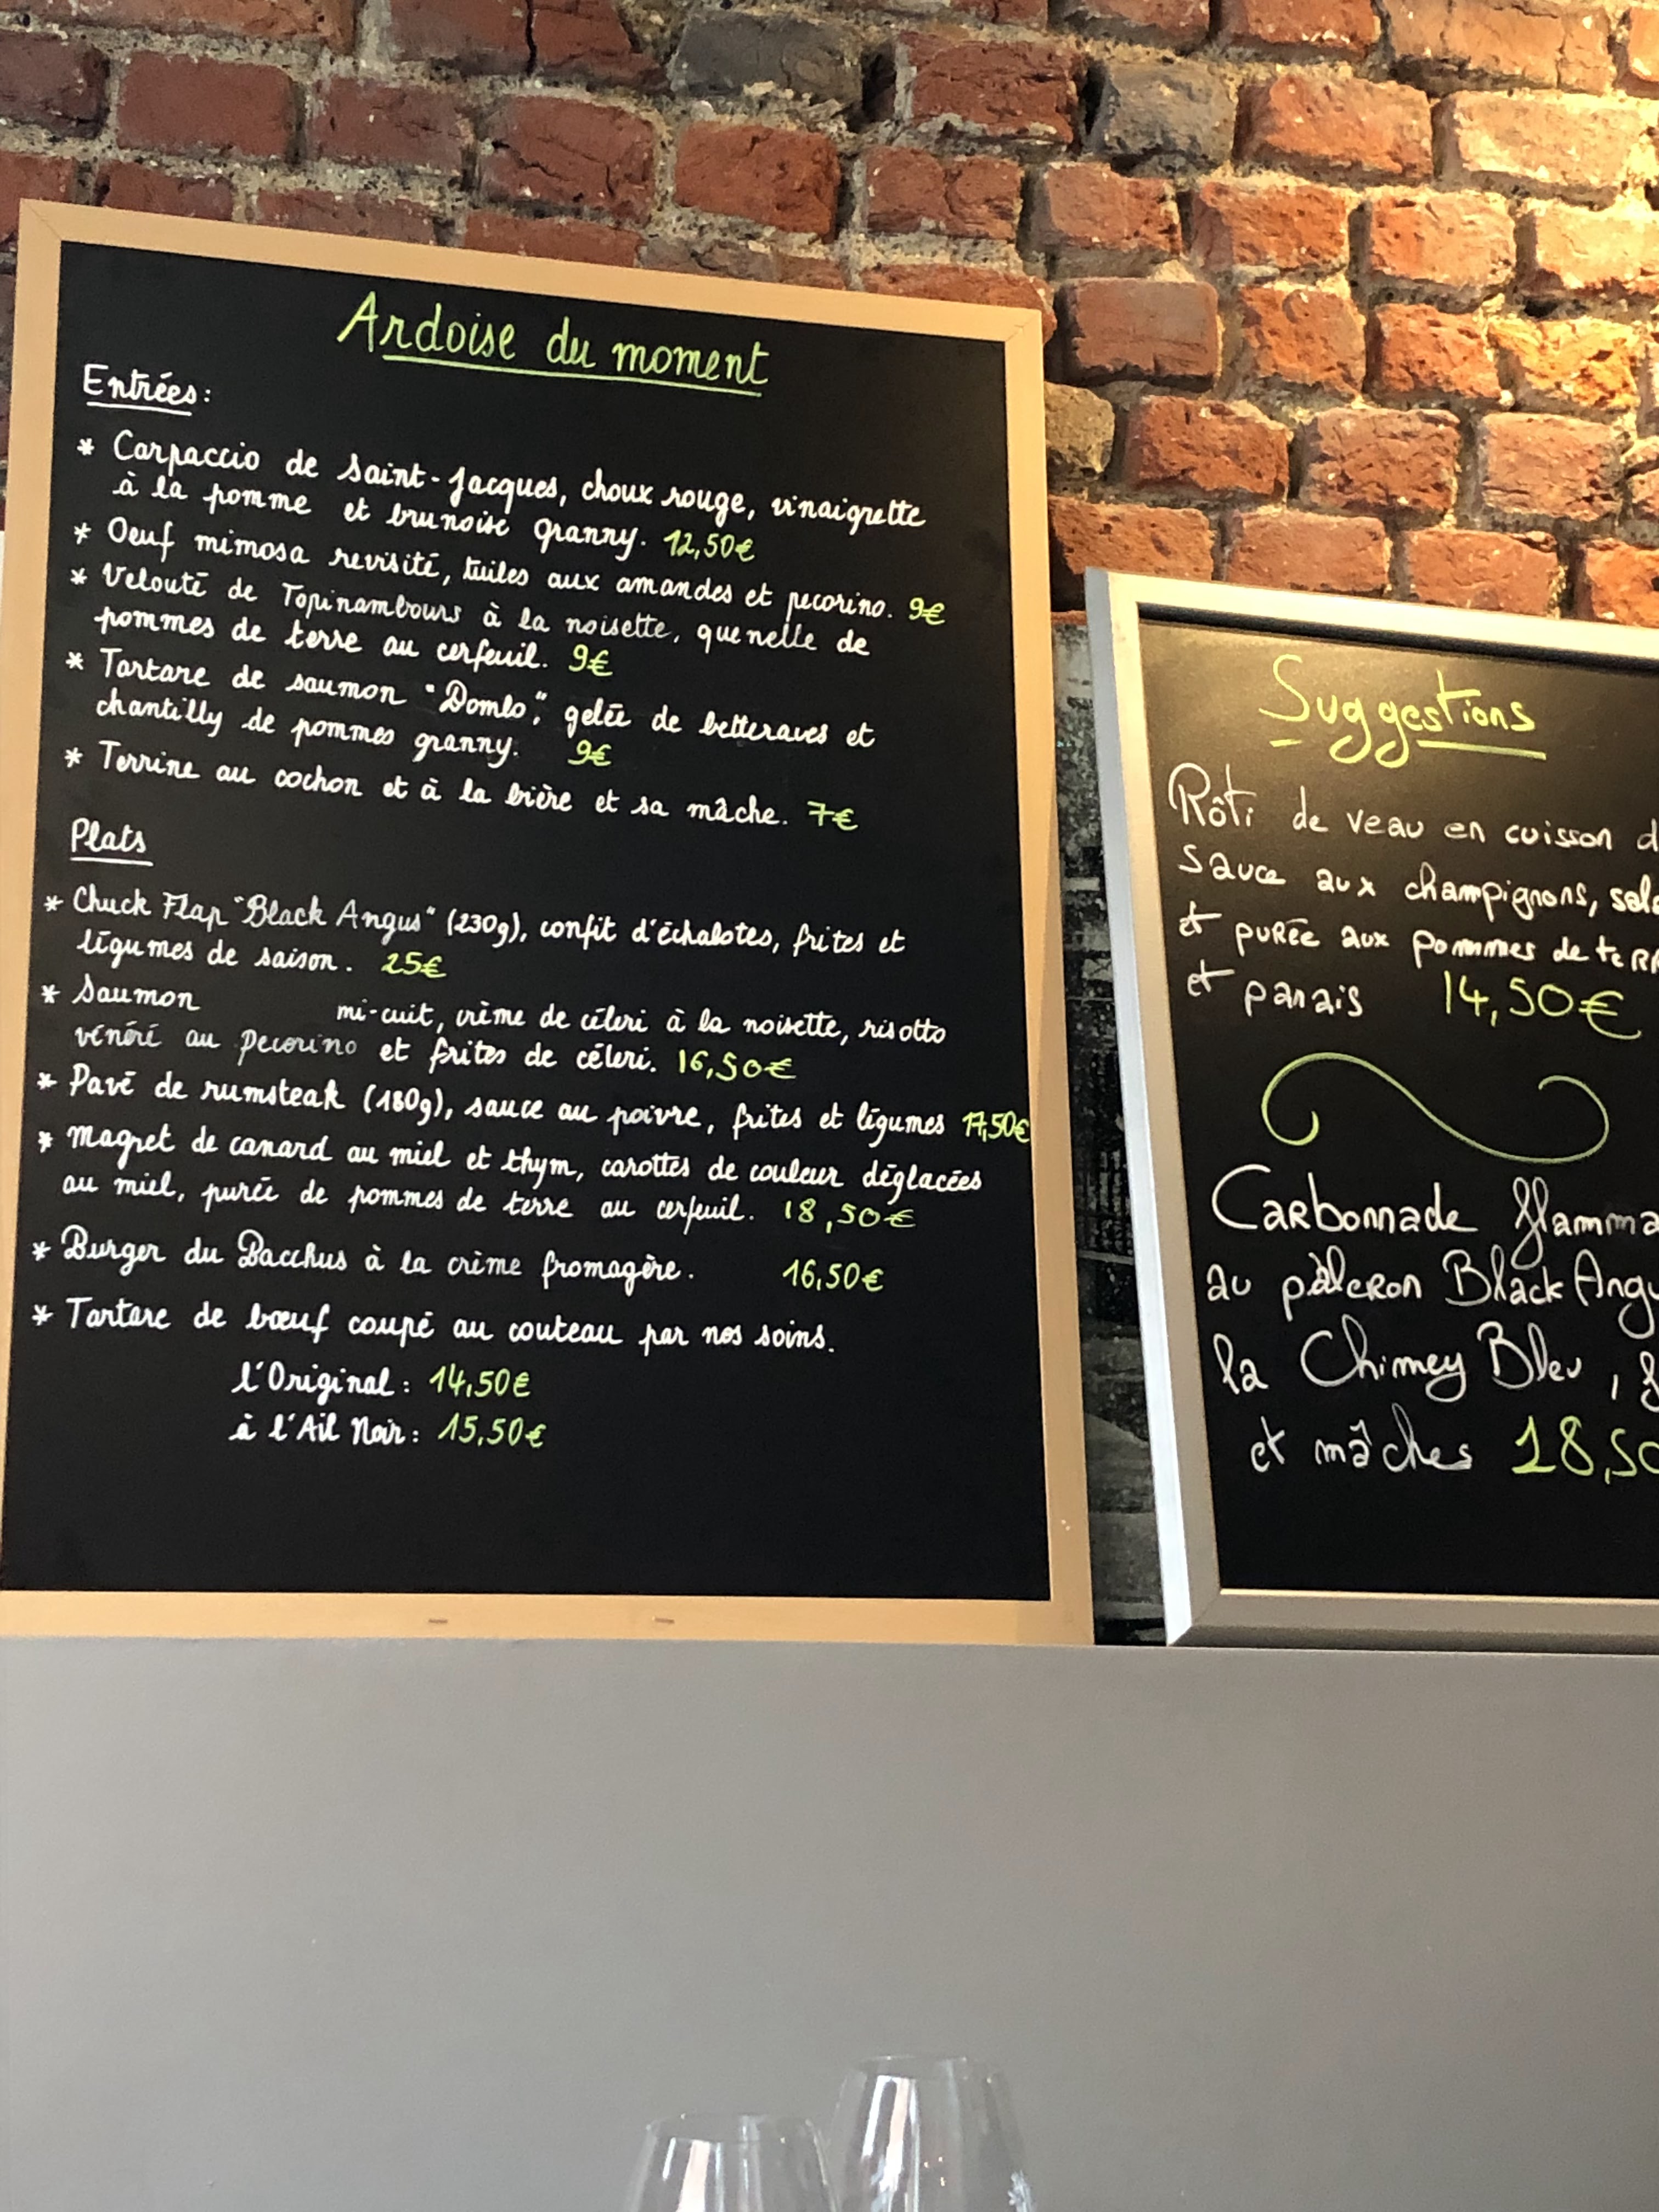 Ardoise du moment
Entrées:
* Carpaccio de Saint-Jacques, choux rouge, vinaigrette
à la pomme et brunoise granny. 12,50€
* Oeuf mimosa revisité, tuiles aux amandes et pecorino. 9€
* Velouté de Topinambours à la noisette, quenelle de
pommes de terre au cerfeuil. 9€
* Tartare de saumon "Domlo", gelée de betteraves et
chantilly de pommes granny. 9€
* Terrine au cochon et à la bière et sa mâche. 7€
Plats
* Chuck Flap "Black Angus" (230g), confit d'échalotes, frites et
légumes de saison. 25€
* Saumon mi-cuit, crème de céleri à la noisette, risotto
vénéré au Pecorino et frites de céleri. 16,50€
* Pavé de rumsteak (180g), sauce au poivre, frites et légumes 17,50€
* Magret de canard au miel et thym, carottes de couleur déglacées
au miel, purée de pommes de terre au cerfeuil. 18,50€
* Burger du Bacchus à la crème fromagère. 16,50€
* Tartare de bœuf coupé au couteau par nos soins.
l'Original: 14,50€
à l'Ail Noir: 15,50€
Suggestions
Rôti de veau en cuisson
sauce aux champignons,
et purée aux pommes de
et panais 14,50€
Carbonnade
au Black
la Chimey Bleu,
et mâches